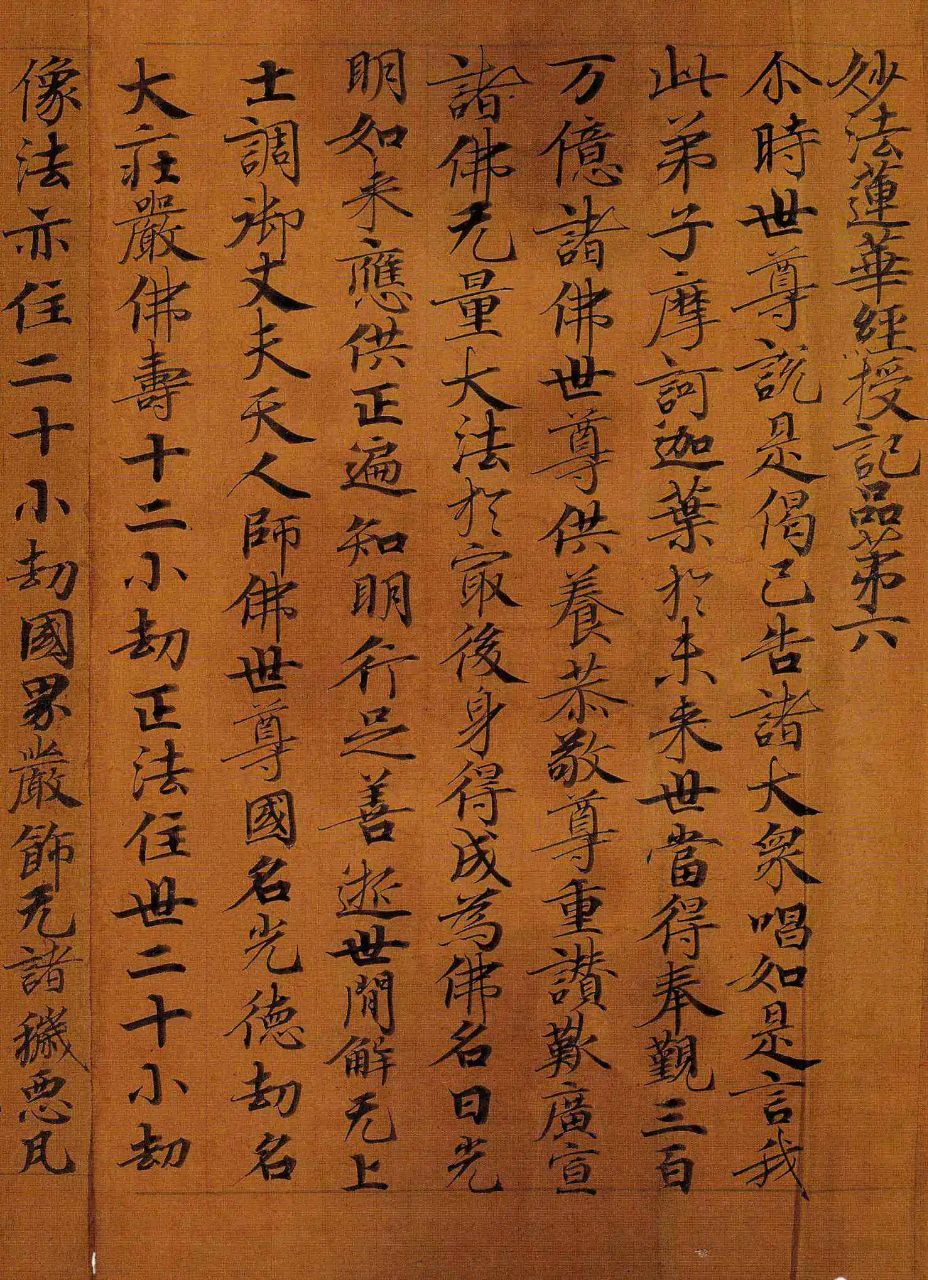 妙法蓮華經授記品苐六
尒時世尊說是偈已告諸大眾唱如是言我
此弟子摩訶迦葉於未来世當得奉覲三百
万億諸佛世尊供養恭敬尊重讚歎廣宣
諸佛无量大法於㝡後身得成為佛名曰光
明如来應供正遍知明行足善逝世間解无上
士調御丈夫天人師佛世尊國名光德劫名
大莊嚴佛壽十二小劫正法住世二十小劫
像法亦住二十小劫國界嚴飾无諸穢惡凡